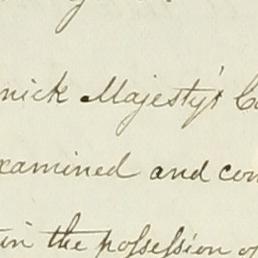 nick Majesty's Co
xamined and com
in the possession of